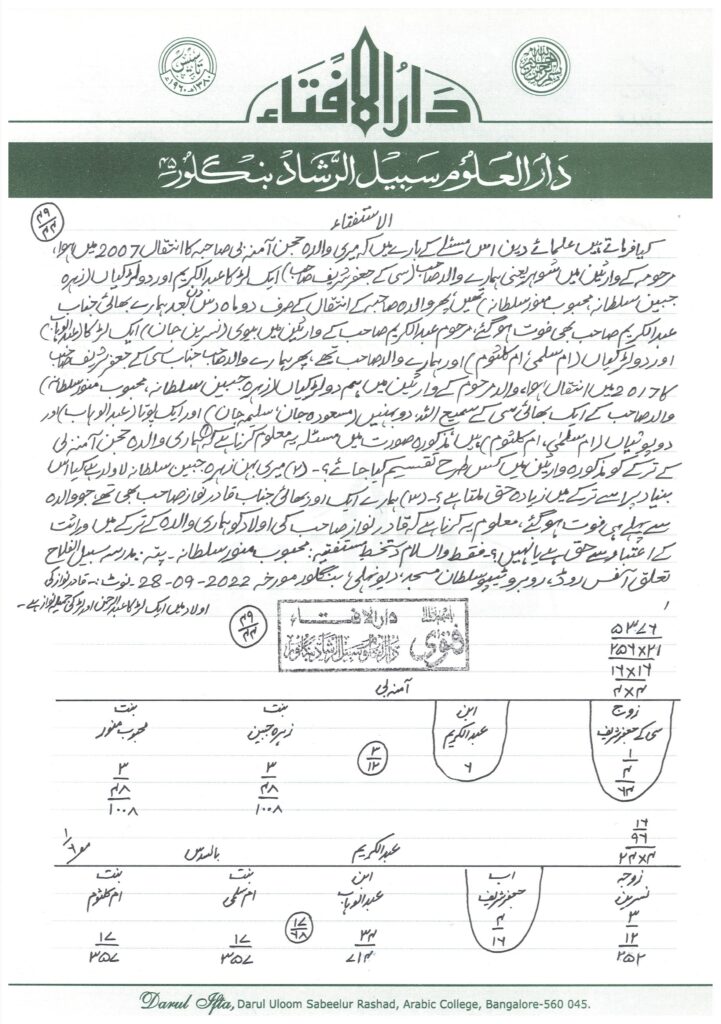 دَارُ الْاِفْتَاء
دَارُ العُلُوم سَبِيلُ الرَّشَاد بَنگلُور ۴۵
۴۹
۴۴
الاستفتاء
کیا فرماتے ہیں علمائے دین اس مسئلے کے بارے میں کہ میری والدہ حجن آمنہ بی صاحبہ کا انتقال 2007 میں ہوا،
مرحومہ کے وارثین میں شوہر یعنی ہمارے والد صاحب (سی کے جعفر شریف صاحب) ایک لڑکا عبدالکریم اور دو لڑکیاں (زہرہ
جبین سلطانہ، محبوب منور سلطانہ) تھیں، پھر والدہ صاحبہ کے انتقال کے صرف دو ماہ دس دن بعد ہمارے بھائی جناب
عبدالکریم صاحب بھی فوت ہو گئے، مرحوم عبدالکریم صاحب کے وارثین میں بیوی (نسرین جان) ایک لڑکا (عبدالوہاب)
اور دو لڑکیاں (ام سلمیٰ، ام کلثوم) اور ہمارے والد صاحب تھے، پھر ہمارے والد صاحب جناب سی کے جعفر شریف صاحب
کا 2017 میں انتقال ہوا، والد مرحوم کے وارثین میں ہم دو لڑکیاں (زہرہ جبین سلطانہ، محبوب منور سلطانہ)
والد صاحب کے ایک بھائی سی کے سمیع اللہ، دو بہنیں (مسعودہ جان، سلیمہ جان) اور ایک پوتا (عبدالوہاب) اور
دو پوتیاں (ام سلمیٰ، ام کلثوم) ہیں مذکورہ صورت میں مسئلہ یہ معلوم کرنا ہے کہ (۱) ہماری والدہ حجن آمنہ بی
کے ترکے کو مذکورہ وارثین میں کس طرح تقسیم کیا جائے؟۔ (۲) میری بہن زہرہ جبین سلطانہ لاوارث ہے کیا اس
بنیاد پر اسے ترکے میں زیادہ حق ملتا ہے؟۔ (۳) ہمارے ایک اور بھائی جناب قادر نواز صاحب بھی تھے جو والدہ
سے پہلے ہی فوت ہو گئے، معلوم یہ کرنا ہے کہ قادر نواز صاحب کی اولاد کو ہماری والدہ کے ترکے میں وراثت
کے اعتبار سے حق ہے یا نہیں؟۔ فقط والسلام دستخط مستفتیہ: محبوب منور سلطانہ۔ پتہ: مدرسہ سبیل الفلاح
تعلق آفس روڈ، روبرو ٹیپو سلطان مسجد، دیونہلی، بنگلور مورخہ 2022-09-28 نوٹ:۔ قادر نواز کی
اولاد میں ایک لڑکا عبدالرحمن اور لڑکی ہے۔
۴۹
۴۴
دار الافتاء
فتویٰ
دار العلوم سبیل الرشاد بنگلور
۵۳۷۶
۲۵۶×۲۱
۱۶×۱۶
۴×۴
آمنہ بی
زوج ابن بنت بنت
سی کے جعفر شریف عبدالکریم زہرہ جبین محبوب منور
۱ ۶ ۳/۱۲ ۳ ۳
۴ ۴۸ ۴۸
۶۴ ۱۰۰۸ ۱۰۰۸
۱۶
۹۶
۲۴×۴
عبدالکریم بالسدس مع ۱/۶
زوجہ اب ابن بنت بنت
نسرین جعفر شریف عبدالوہاب ام سلمی ام کلثوم
۳ ۴ ۱۷/۶۸
۱۲ ۱۶ ۳۴ ۱۷ ۱۷
۲۵۲ ۷۱۴ ۳۵۷ ۳۵۷
Darul Ifta, Darul Uloom Sabeelur Rashad, Arabic College, Bangalore-560 045.